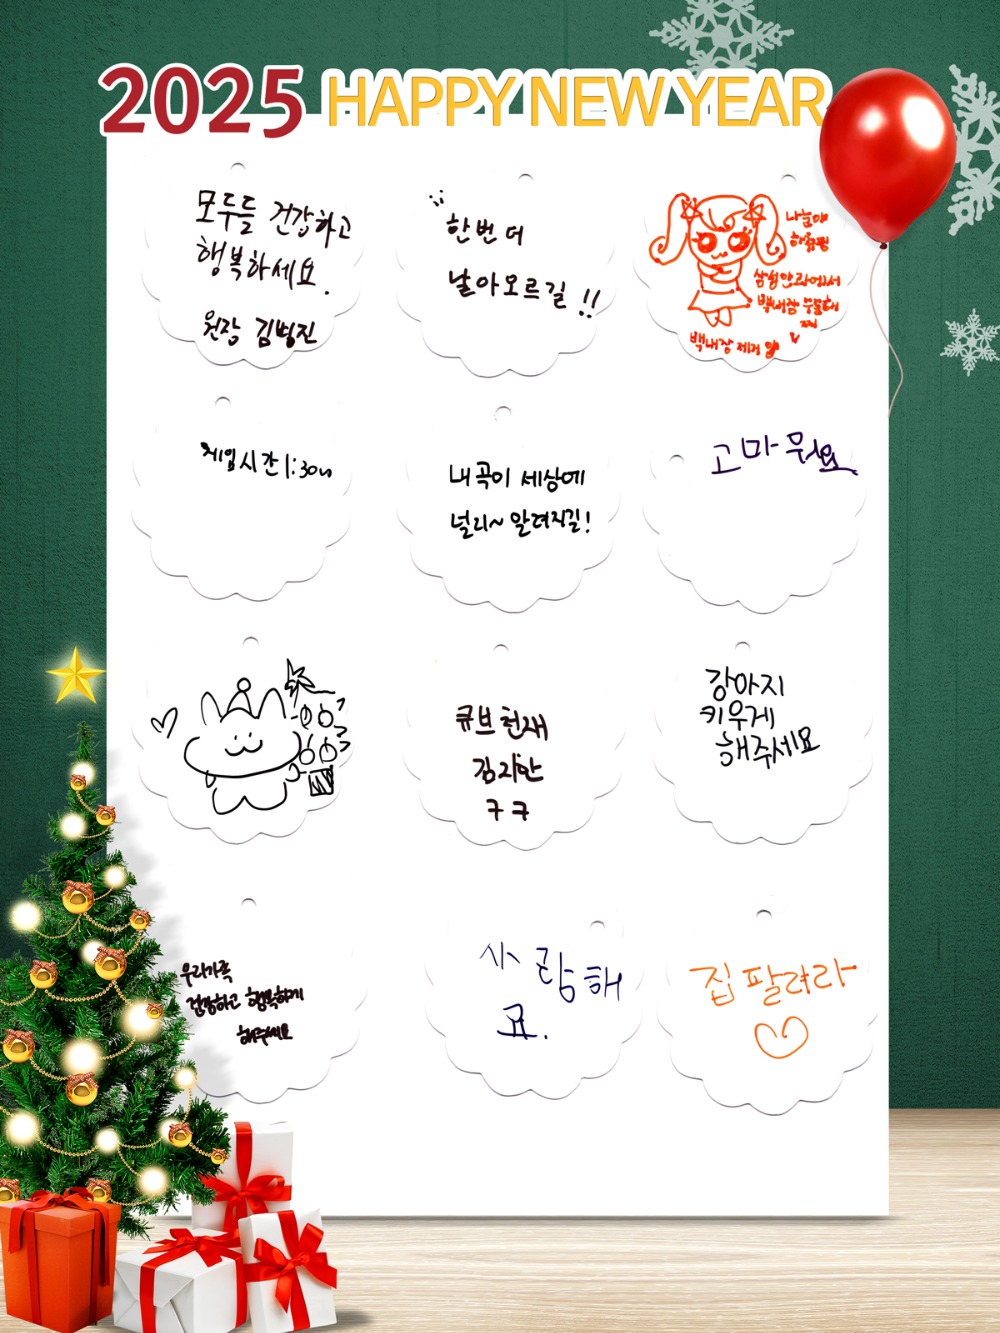 2025 HAPPY NEW YEAR
모두들 건강하고
행복하세요.
원장 김병진
한번 더
날아오르길 !!
나눈야
하츄핑
삼성안과에서
백내장 수술해
백내장 제거
게임시간 1:30
내곡이 세상에
널리~ 알려지길!
고마워요
큐브천재
김지안
ㅋㅋ
강아지
키우게
해주세요
우리가족
건강하고 행복하게
해주세요
사랑해
요.
집 팔려라